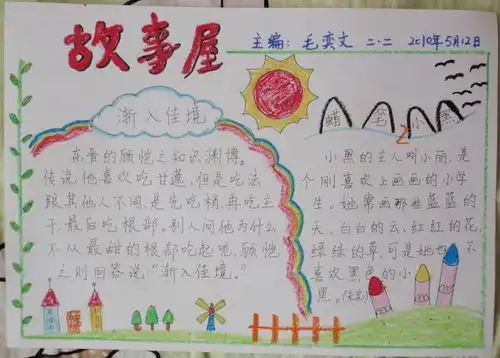 故事屋
主编：毛奕文 二·二 2010年5月12日
渐入佳境
东晋的顾恺之知识渊博。
传说他喜欢吃甘蔗，但是吃法
跟其他人不同，是先吃梢，再吃主
干，最后吃根部。别人问他为什么
不从最甜的根部吃起呢，顾恺
之则回答说：“渐入佳境。”
蜡笔小黑2
小黑的主人叫小丽，是
个刚喜欢上画画的小学
生。她常画那些蓝蓝的
天、白白的云、红红的花、
绿绿的草，可是她也不
喜欢黑色的小
黑。(未完)